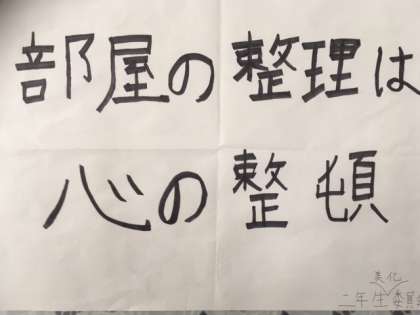 部屋の整理は
心の整頓
美化
二年生委員